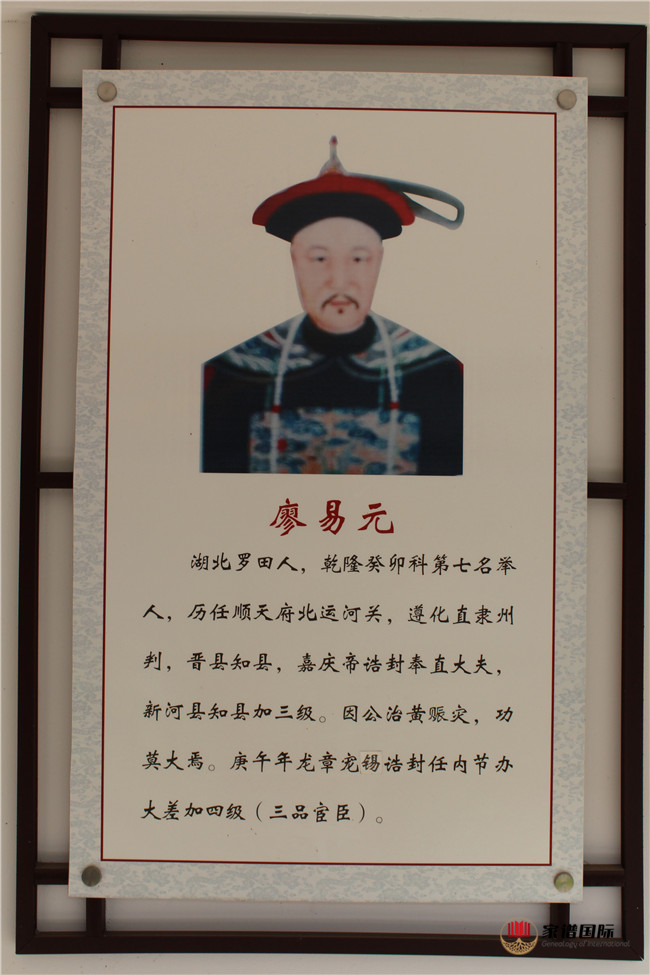 廖易元
湖北罗田人，乾隆癸卯科第七名举
人，历任顺天府北运河关，遵化直隶州
判，晋县知县，嘉庆帝诰封奉直大夫，
新河县知县加三级。因公治黄赈灾，功
莫大焉。庚午年龙章宠锡诰封任内节办
大差加四级（三品宦臣）。
家谱国际
Genealogy of International